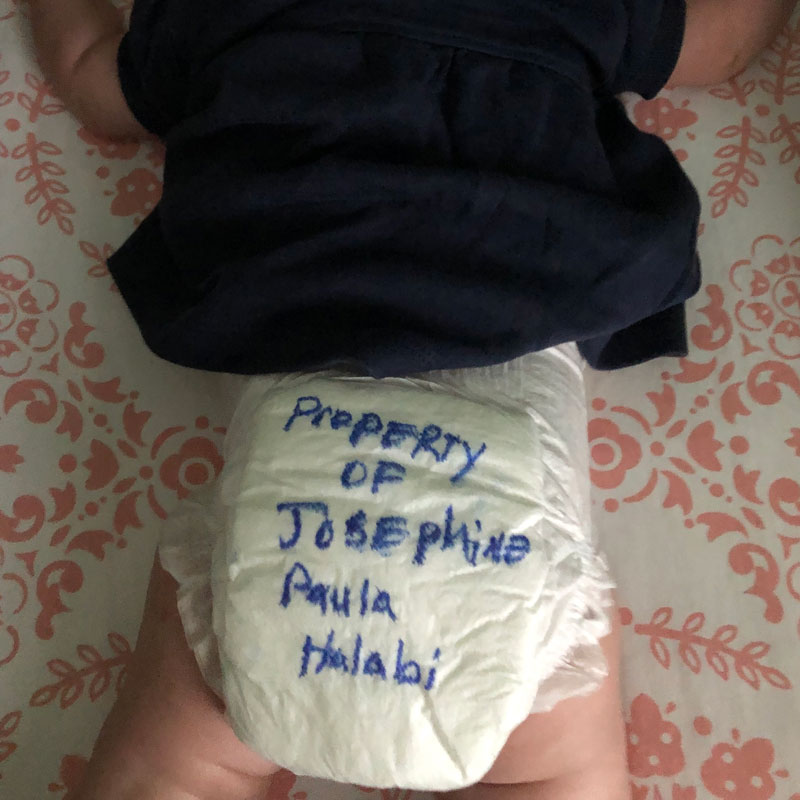 PROPERTY
OF
JOSEPHINE
Paula
Halabi